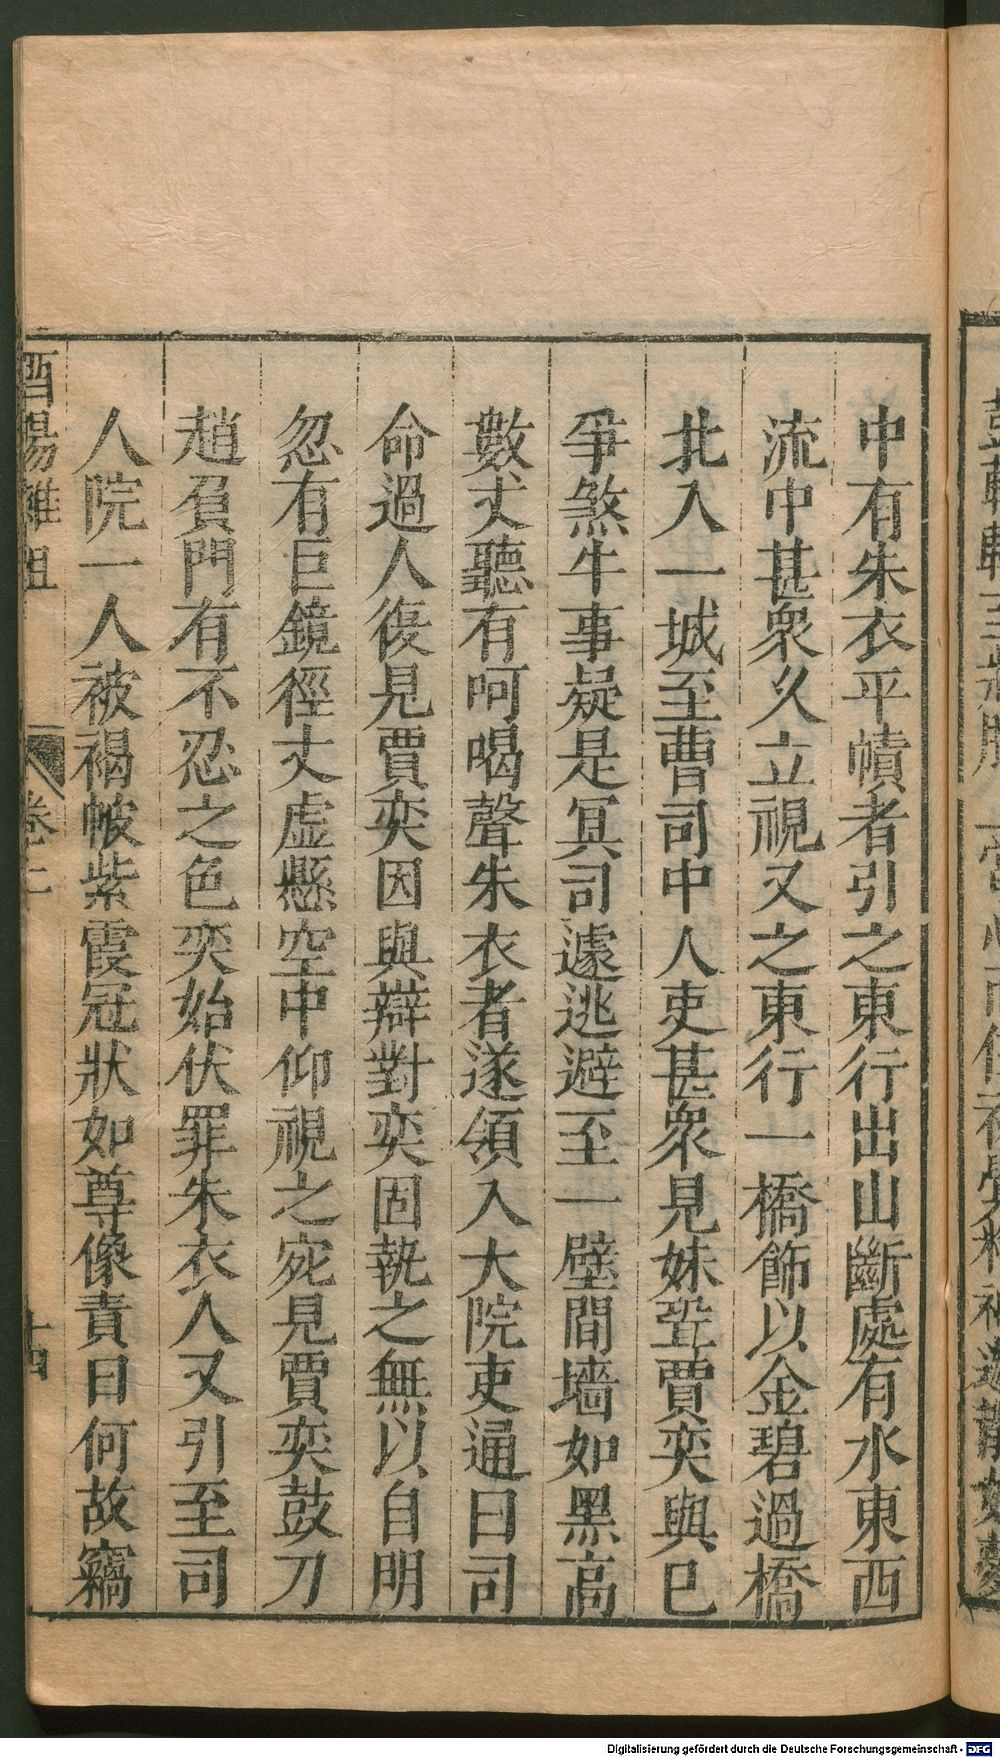 中有朱衣平幘者引之東行出山斷處有水東西
流中甚衆久立視又之東行一橋飾以金碧過橋
北入一城至曹司中人吏甚衆見妹壻賈奕與已
爭煞牛事疑是冥司遽逃避至一壁間墻如黑高
數丈聽有呵喝聲朱衣者遂領入大院吏通曰司
命過人復見賈奕因與辯對奕固執之無以自明
忽有巨鏡徑丈虛懸空中仰視之宛見賈奕鼓刀
趙負門有不忍之色奕始伏罪朱衣人又引至司
人院一人被褐帔紫霞冠狀如尊像責曰何故竊
酉陽雜俎 卷二 十四
Digitalisierung gefördert durch die Deutsche Forschungsgemeinschaft - DFG